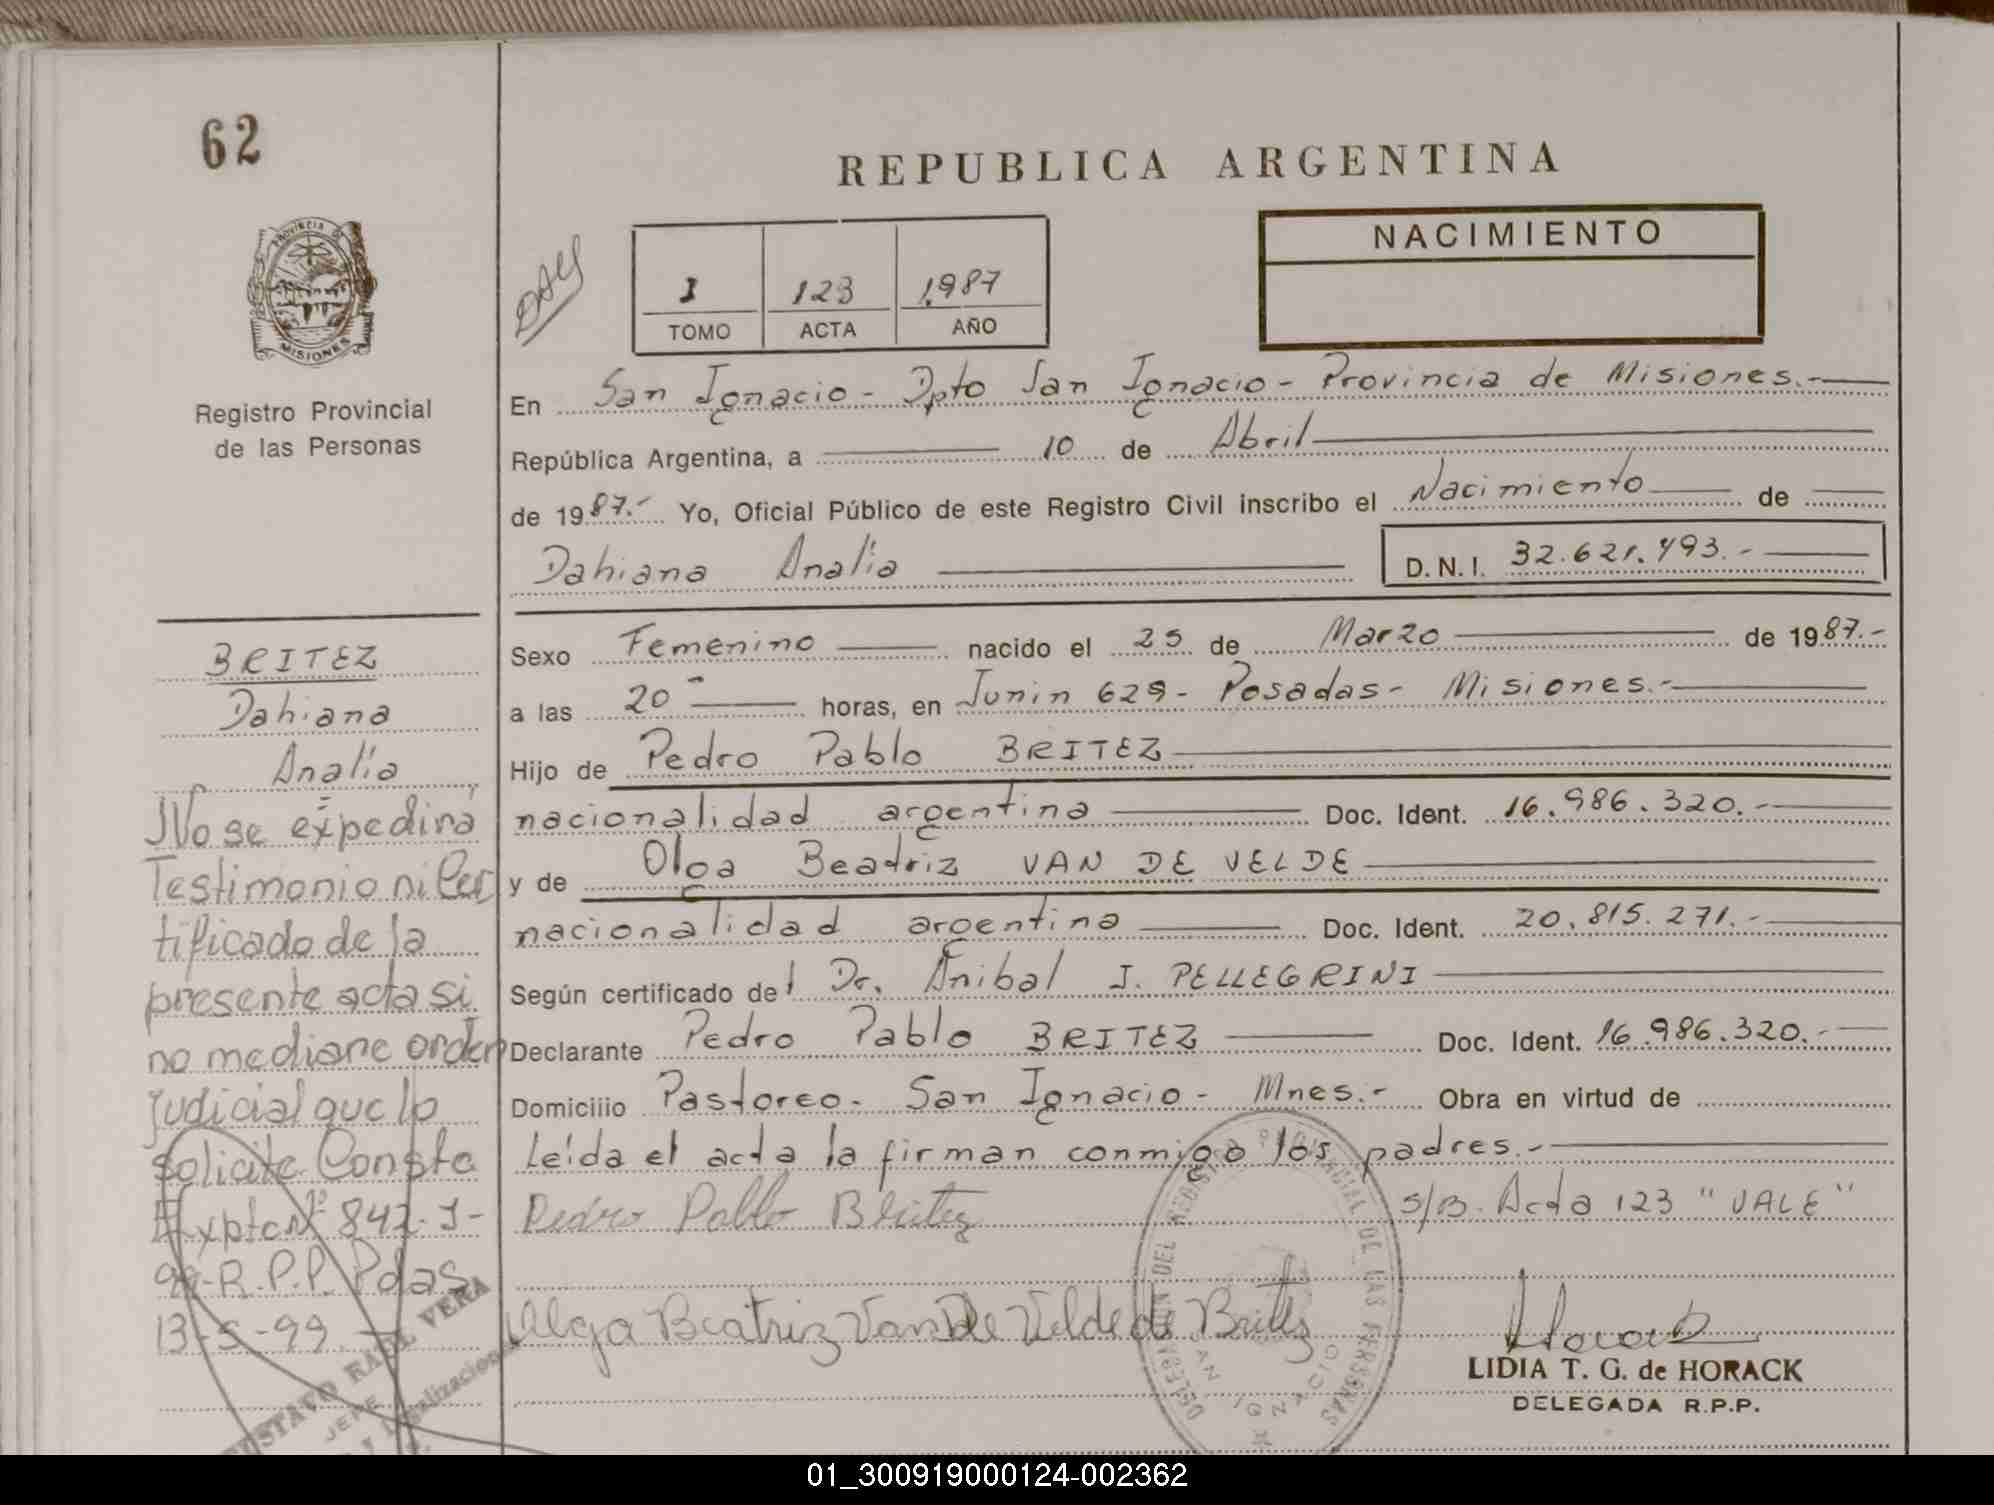 62
REPUBLICA ARGENTINA
NACIMIENTO
1 123 1987
TOMO ACTA AÑO
PROVINCIA DE
MISIONES
Registro Provincial
de las Personas
En San Ignacio - Dpto San Ignacio - Provincia de Misiones.-
República Argentina, a 10 de Abril
de 1987.- Yo, Oficial Público de este Registro Civil inscribo el Nacimiento de
Dahiana Analia D.N.I. 32.621.793.-
Sexo Femenino nacido el 25 de Marzo de 1987.-
a las 20 horas, en Junin 629 - Posadas - Misiones.-
Hijo de Pedro Pablo BRITEZ
nacionalidad argentina Doc. Ident. 16.986.320.-
y de Olga Beatriz VAN DE VELDE
nacionalidad argentina Doc. Ident. 20.815.271.-
Según certificado del Dr. Anibal J. PELLEGRINI
Declarante Pedro Pablo BRITEZ Doc. Ident. 16.986.320.-
Domicilio Pastoreo - San Ignacio - Mnes.- Obra en virtud de
leída el acta la firman conmigo los padres.-
Pedro Pablo Britez S/B. Acta 123 "VALE"
Olga Beatriz Van De Velde de Britez
LIDIA T. G. de HORACK
DELEGADA R.P.P.
BRITEZ
Dahiana
Analía
No se expedirá
Testimonio ni Cer
tificado de la
presente acta si
no mediane orden
judicial que lo
solicite. Conste
Expte Nº 842-J-
99-R.P.P. Pdas
13-5-99.
GUSTAVO RAUL VERA
JEFE
Legalizaciones
DELEGACION DEL REGISTRO PROVINCIAL DE LAS PERSONAS
SAN IGNACIO
01_300919000124-002362